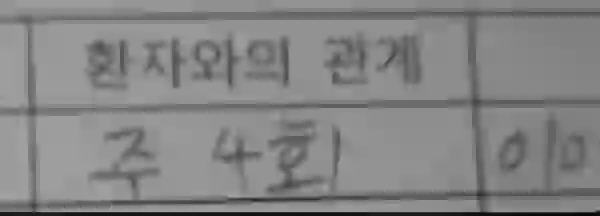 환자와의 관계
주 4회